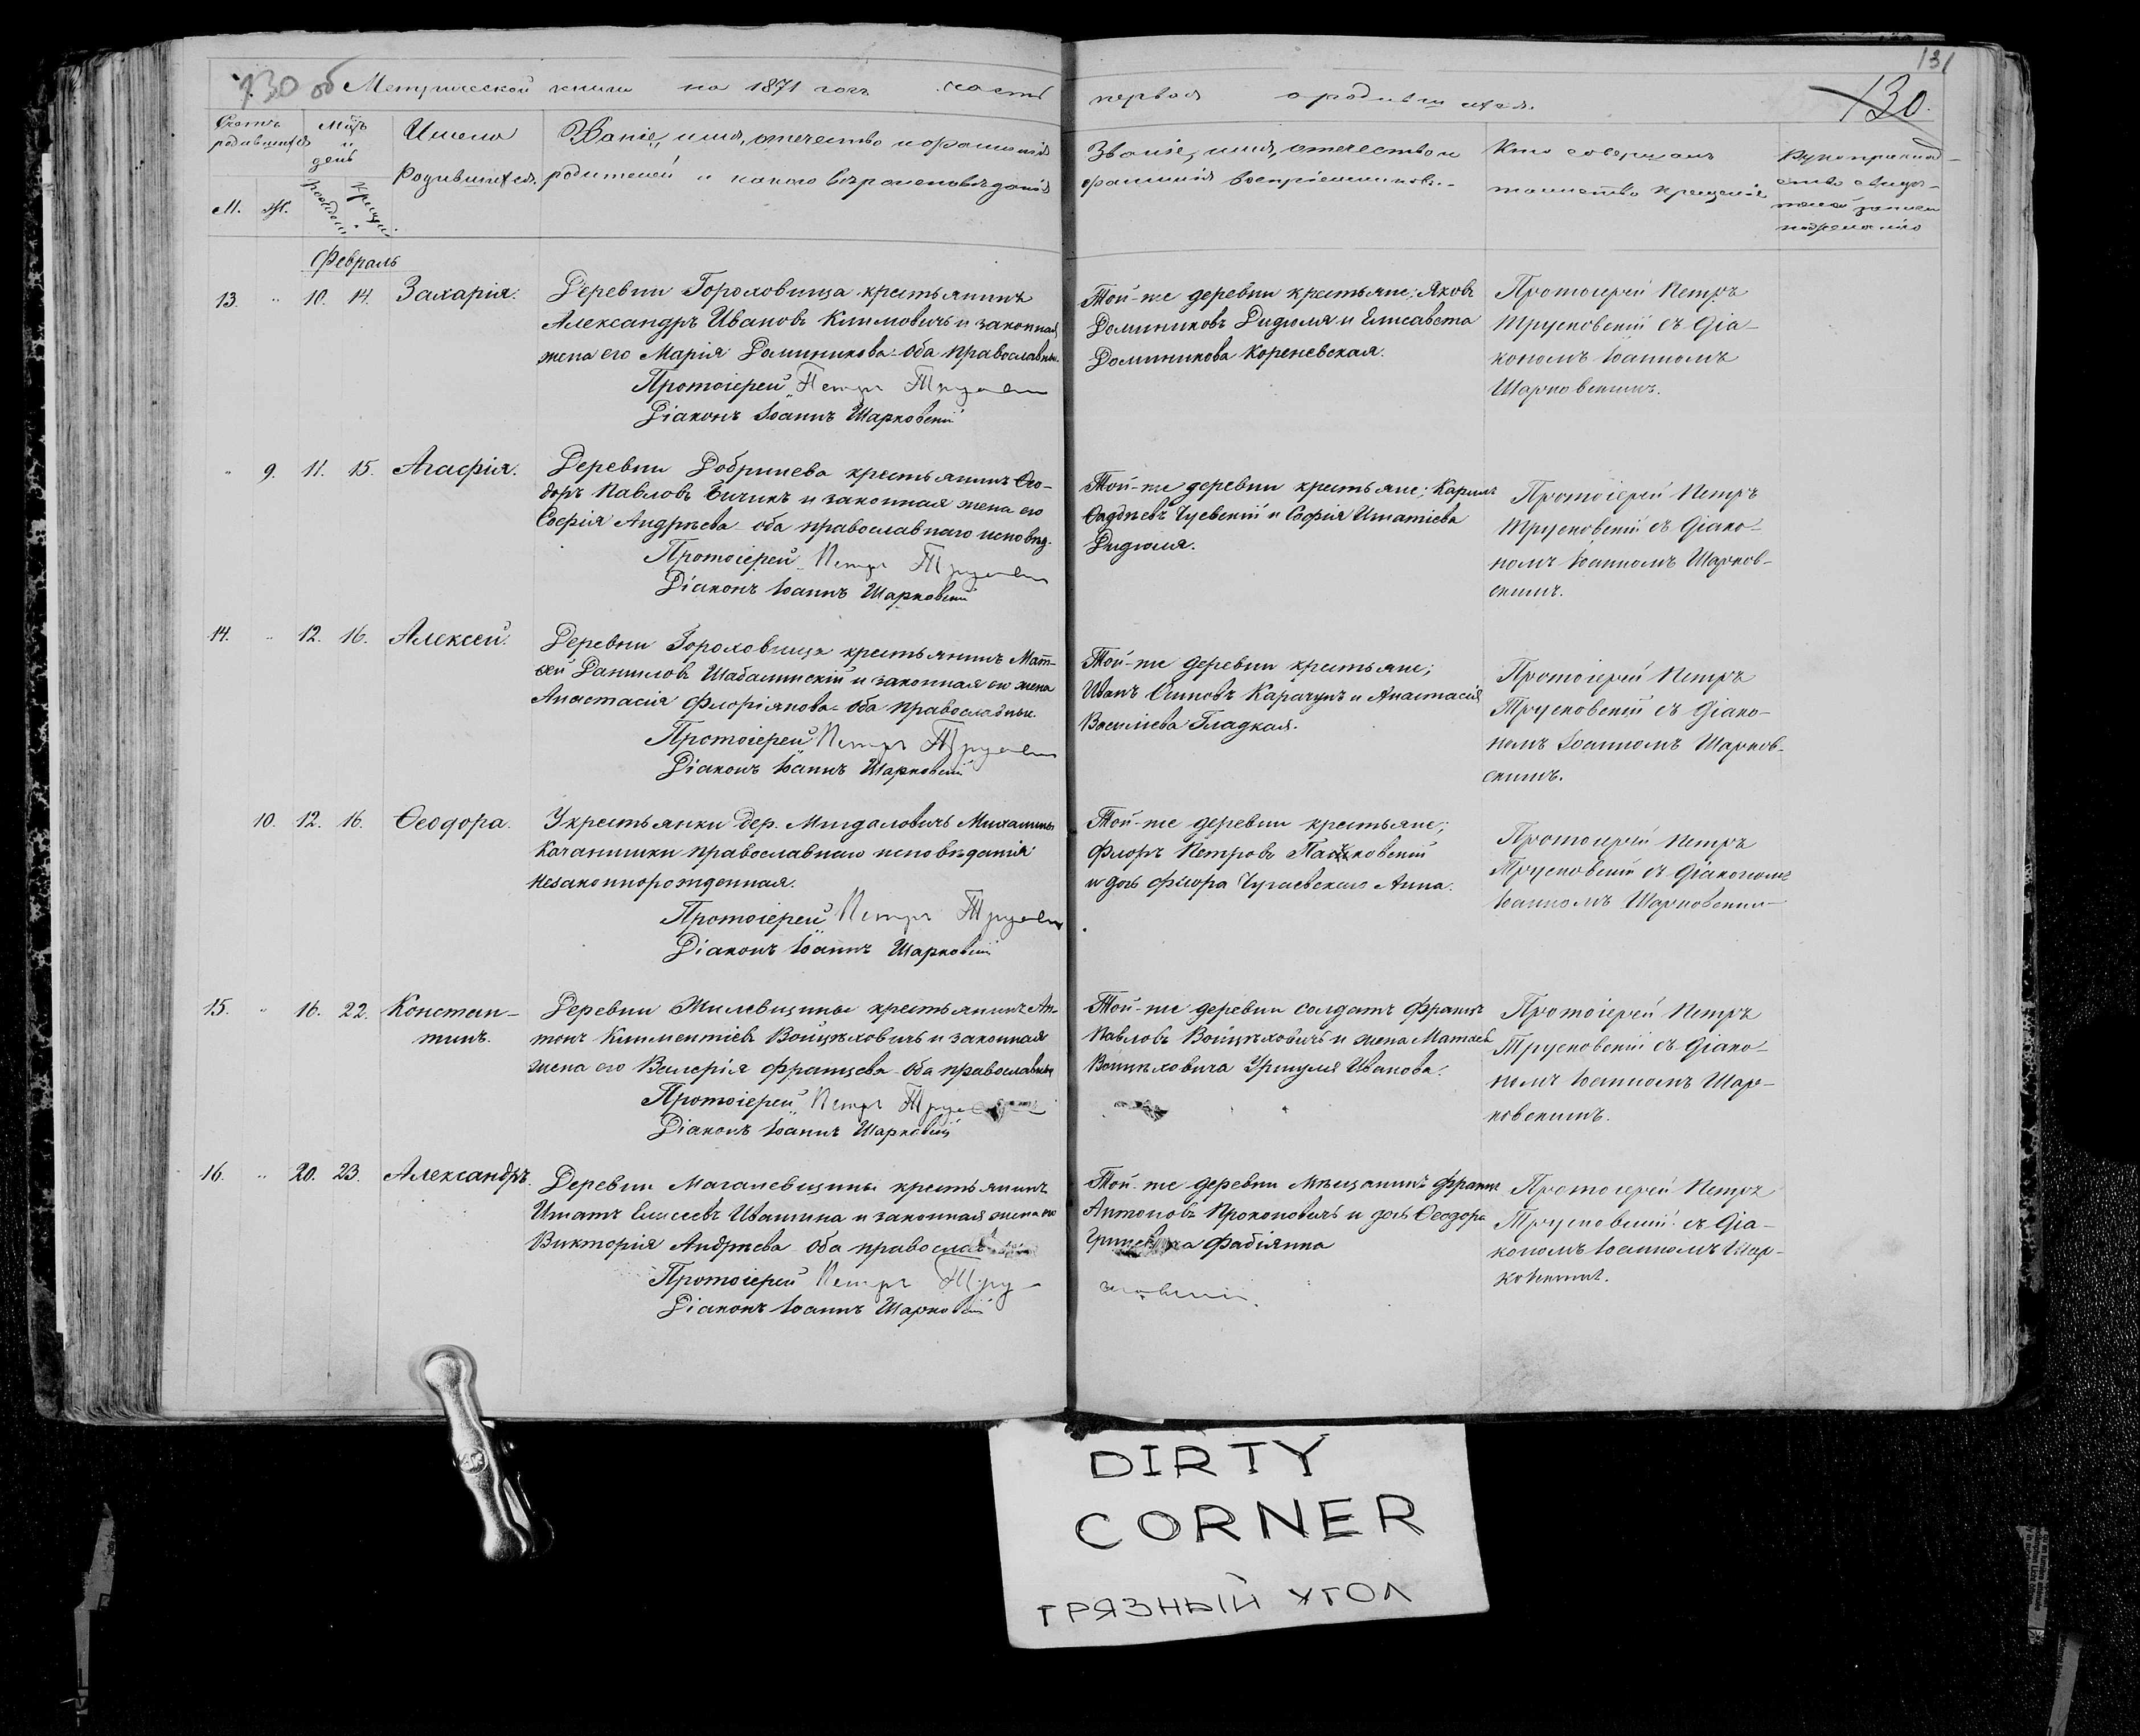 130 об Метрической книги на 1871 годъ часть
первая о родившихся.
131
130.
Счетъ родившихся
М. Ж.
Мѣц. и день
рожден. крещен.
Имена
Родившихся.
Званіе, имя, отчество и фамилія
родителей и какого вѣроисповѣданія
Званіе, имя, отчество и
фамилія воспріемниковъ.
Кто совершалъ
таинство крещенія
Рукоприклад-
ство свидѣ-
телей записи
по желанію
Февраль
13. " 10. 14. Захарія.
Деревни Гороховища крестьянинъ
Александръ Ивановъ Климовичъ и законная
жена его Марія Доминикова - оба православные.
Протоіерей Петръ
Діаконъ Іоаннъ Шарковскій
Той-же деревни крестьяне; Яковъ
Доминиковъ Дидюля и Елисавета
Доминикова Кореневская.
Протоіерей Петръ
Трусковскій съ Діа-
кономъ Іоанномъ
Шарковскимъ.
" 9. 11. 15. Агафія.
Деревни Добринева крестьянинъ Ѳео-
доръ Павловъ Бичикъ и законная жена его
Софія Андрѣева - оба православнаго исповѣд.
Протоіерей Петръ
Діаконъ Іоаннъ Шарковскій
Той-же деревни крестьяне;
Ѳадѣевъ Чуевскій и Софія Игнатіева
Дидюля.
Протоіерей Петръ
Трусковскій съ Діако-
номъ Іоанномъ Шарков-
скимъ.
14. " 12. 16. Алексей.
Деревни Гороховища крестьянинъ Мат-
ѳей Даниловъ Шабалинскій и законная его жена
Анастасія Флоріянова - оба православные.
Протоіерей Петръ
Діаконъ Іоаннъ Шарковскій
Той-же деревни крестьяне;
Иванъ Осиповъ Карачунъ и Анастасія
Василіева Гладкая.
Протоіерей Петръ
Трусковскій съ Діако-
номъ Іоанномъ Шарков-
скимъ.
10. 12. 16. Ѳеодора.
У крестьянки дер. Мигдаловичъ
Качанишки православнаго исповѣданія
незаконнорожденная.
Протоіерей Петръ
Діаконъ Іоаннъ Шарковскій
Той-же деревни крестьяне;
Флоръ Петровъ
и дочь Флора Чугаевскаго Анна.
Протоіерей Петръ
Трусковскій съ Діакономъ
Іоанномъ Шарковскимъ
15. " 16. 22. Констан-
тинъ.
Деревни Милевщины крестьянинъ Ан-
тонъ Климентіевъ Войцѣховичъ и законная
жена его Валерія Францева - оба православные
Протоіерей Петръ
Діаконъ Іоаннъ Шарковскій
Той-же деревни солдатъ Францъ
Павловъ Войцѣховичъ и жена Матвея
Войцѣховича Уршуля Иванова.
Протоіерей Петръ
Трусковскій съ Діако-
номъ Іоанномъ Шар-
ковскимъ.
16. " 20. 23. Александръ.
Деревни Магалевщины крестьянинъ
Игнатъ Елисеевъ Ивашина и законная жена его
Викторія Андрѣева оба
Протоіерей Петръ Тру-
Діаконъ Іоаннъ Шарковскій
Той-же деревни Мѣщанинъ Францъ
Антоновъ Прокоповичъ и дочь Ѳеодора
Фабіянна
сковскій.
Протоіерей Петръ
Трусковскій съ Діа-
кономъ Іоанномъ Шар-
ковскимъ.
DIRTY
CORNER
ГРЯЗНЫЙ УГОЛ